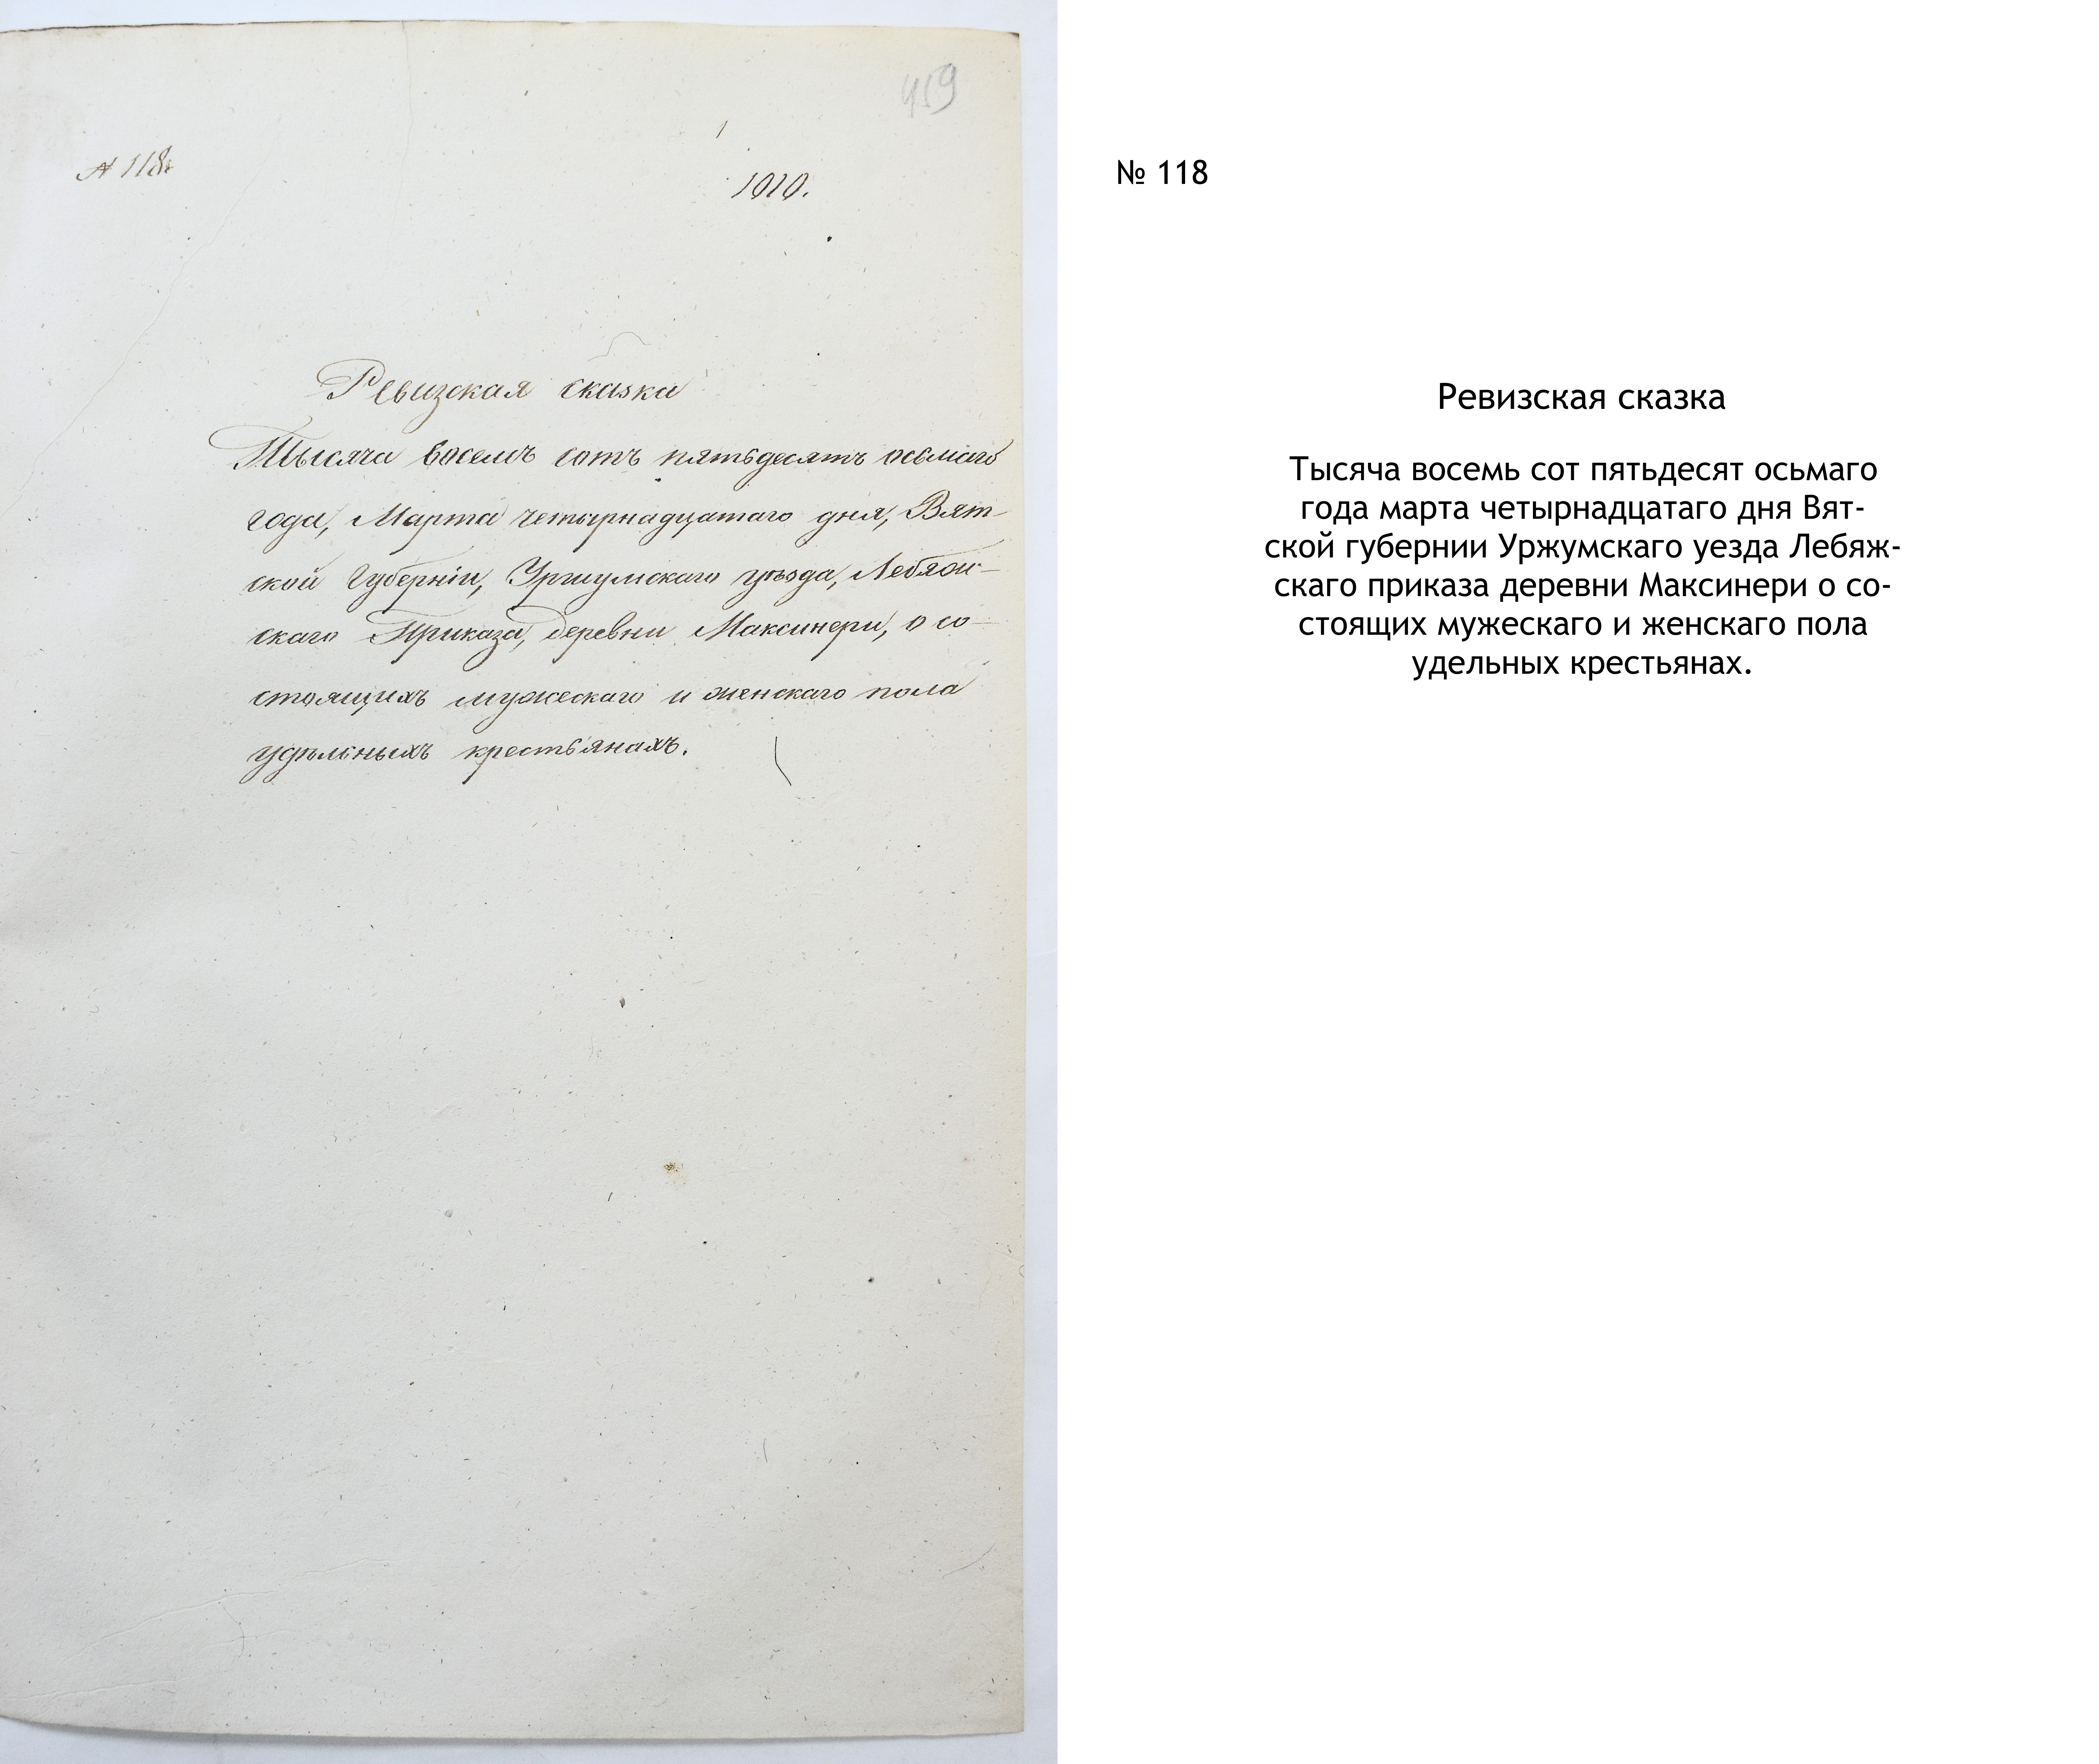 459
№ 118.
1010.
Ревизская сказка
Тысяча восемъ сотъ пятьдесятъ осьмаго
года, Марта четырнадцатаго дня, Вят-
ской Губерніи, Уржумскаго уѣзда, Лебяж-
скаго Приказа, деревни Максинери, о со-
стоящихъ мужескаго и женскаго пола
удѣльныхъ крестьянахъ.
№ 118
Ревизская сказка
Тысяча восемь сот пятьдесят осьмаго
года марта четырнадцатаго дня Вят-
ской губернии Уржумскаго уезда Лебяж-
скаго приказа деревни Максинери о со-
стоящих мужескаго и женскаго пола
удельных крестьянах.